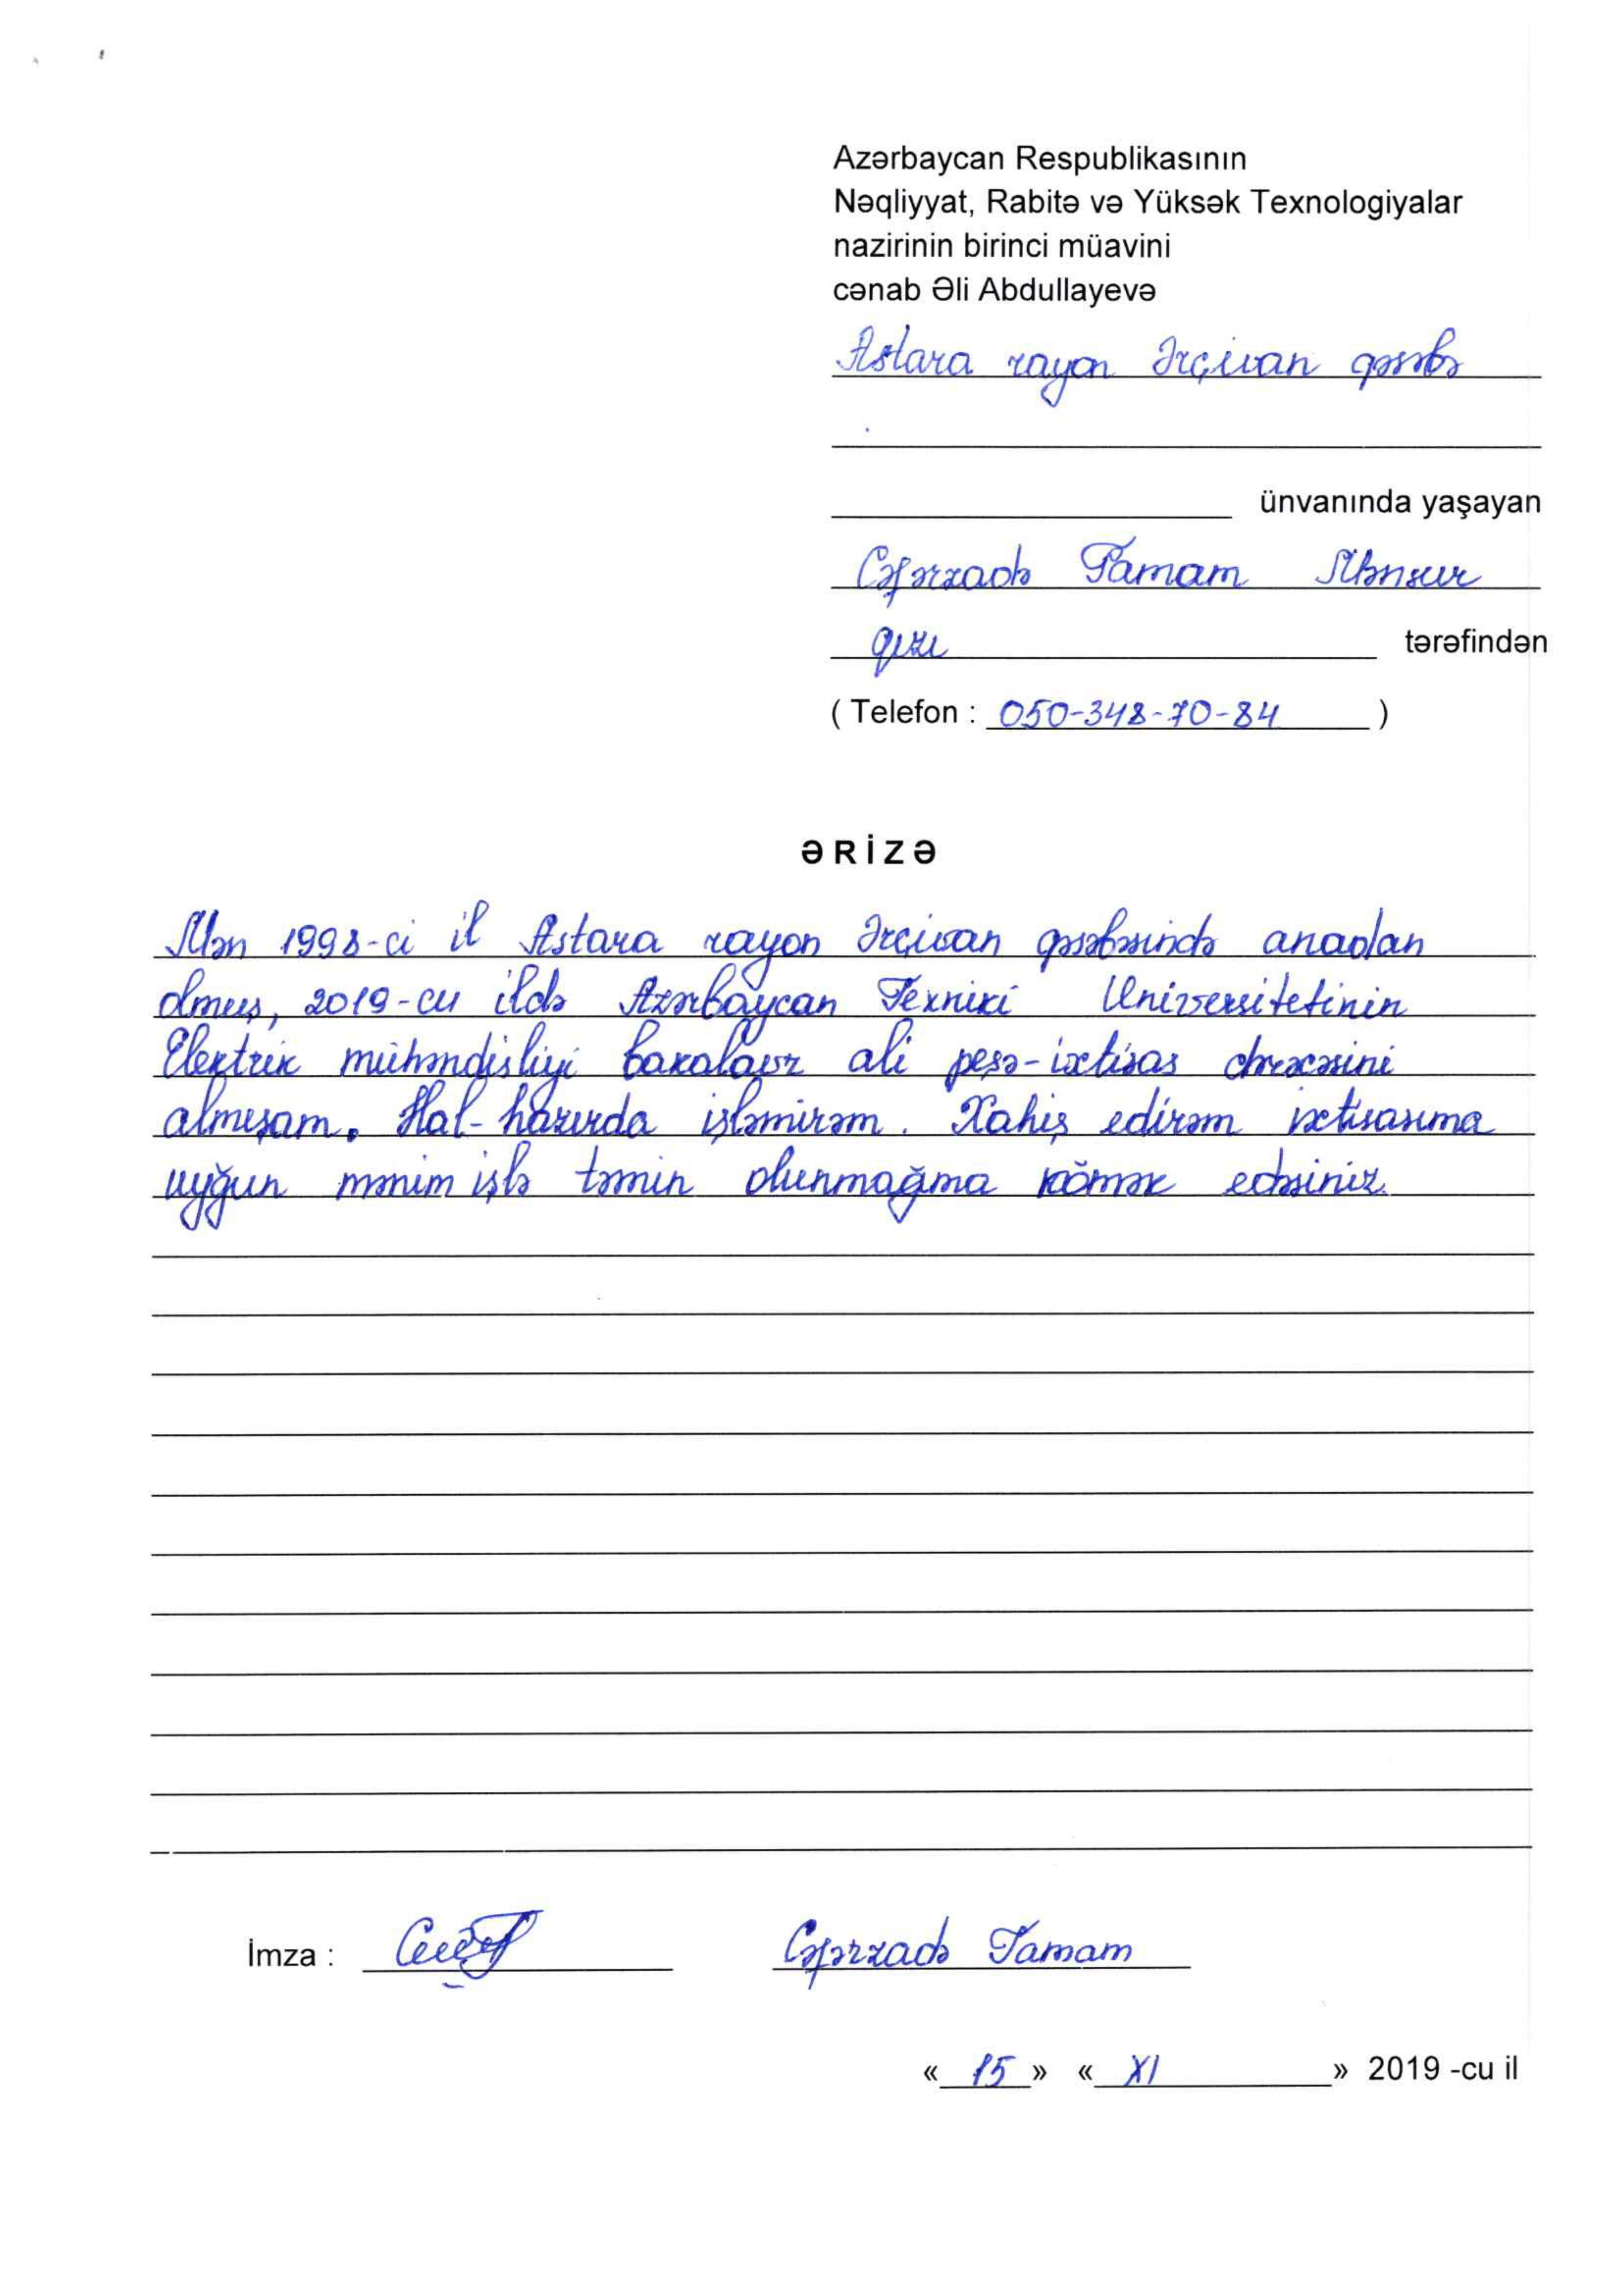 Azərbaycan Respublikasının
Nəqliyyat, Rabitə və Yüksək Texnologiyalar
nazirinin birinci müavini
cənab Əli Abdullayevə
Astara rayon Ərçivan qəsəbə
ünvanında yaşayan
Cəfərzadə Tamam Mənsur
qızı tərəfindən
( Telefon : 050-348-70-84 )
ƏRİZƏ
Mən 1998-ci il Astara rayon Ərçivan qəsəbəsində anadan
olmuş, 2019-cu ildə Azərbaycan Texniki Universitetinin
Elektrik mühəndisliyi bakalavr ali peşə-ixtisas dərəcəsini
almışam. Hal-hazırda işləmirəm. Xahiş edirəm ixtisasıma
uyğun mənim işlə təmin olunmağıma kömək edəsiniz.
İmza : Cəfərzadə Tamam
« 15 » « XI » 2019 -cu il